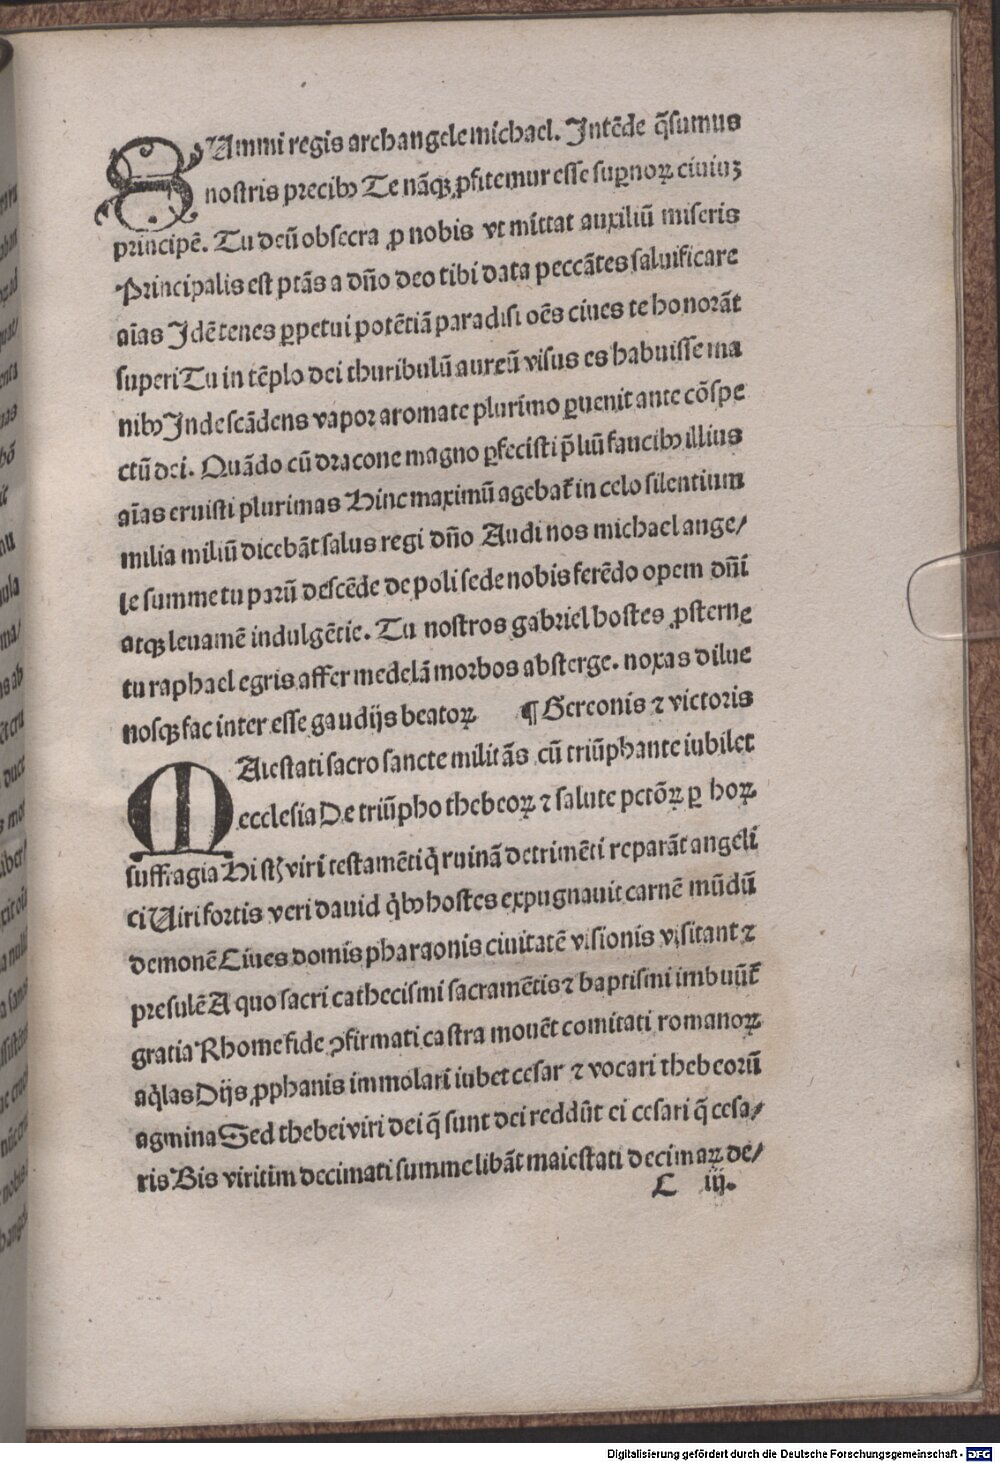 SUmmi regis archangele michael. Intēde q̄sumus
nostris precibꝰ Te nāqꝫ ꝓfitemur esse suꝑnoꝝ ciuiuꝫ
principē. Tu deū obsecra ꝓ nobis vt mittat auxiliū miseris
Principalis est ptās a dño deo tibi data peccātes saluificare
aīas Idē tenes ꝑpetui potētiā paradisi oēs ciues te honorāt
superi Tu in tēplo dei thuribulū aureū visus es habuisse ma
nibꝰ Inde scādens vapor aromate plurimo ꝑuenit ante cōspe
ctū dei. Quādo cū dracone magno ꝑfecisti p̄liū faucibꝰ illius
aīas eruisti plurimas Hinc maximū agebat̄ in celo silentium
milia miliū dicebāt salus regi dño Audi nos michael ange/
le summe tu parū descēde de poli sede nobis ferēdo opem dñi
atqꝫ leuamē indulgētie. Tu nostros gabriel hostes ꝓsterne
tu raphael egris affer medelā morbos absterge. noxas dilue
nosqꝫ fac inter esse gaudijs beatoꝝ ¶ Gereonis ⁊ victoris
MAiestati sacro sancte militās cū triūphante iubilet
ecclesia De triūpho thebeoꝝ ⁊ salute pctōꝝ ꝑ hoꝝ
suffragia Hi st̄ viri testamēti q̄ ruinā detrimēti reparāt angeli
ci Uiri fortis veri dauid q̄bꝰ hostes expugnauit carnē mūdū
demonē Ciues domis pharaonis ciuitatē visionis visitant ⁊
presulē A quo sacri cathecismi sacramētis ⁊ baptismi imbuūt̄
gratia Rhome fide ꝯfirmati castra mouēt comitati romanoꝝ
aq̄las Dijs ꝓphanis immolari iubet cesar ⁊ vocari thebeorū
agmina Sed thebei viri dei q̄ sunt dei reddūt ei cesari q̄ cesa/
ris Bis viritim decimati summe libāt maiestati decimaꝝ de/
C iij.
Digitalisierung gefördert durch die Deutsche Forschungsgemeinschaft - DFG